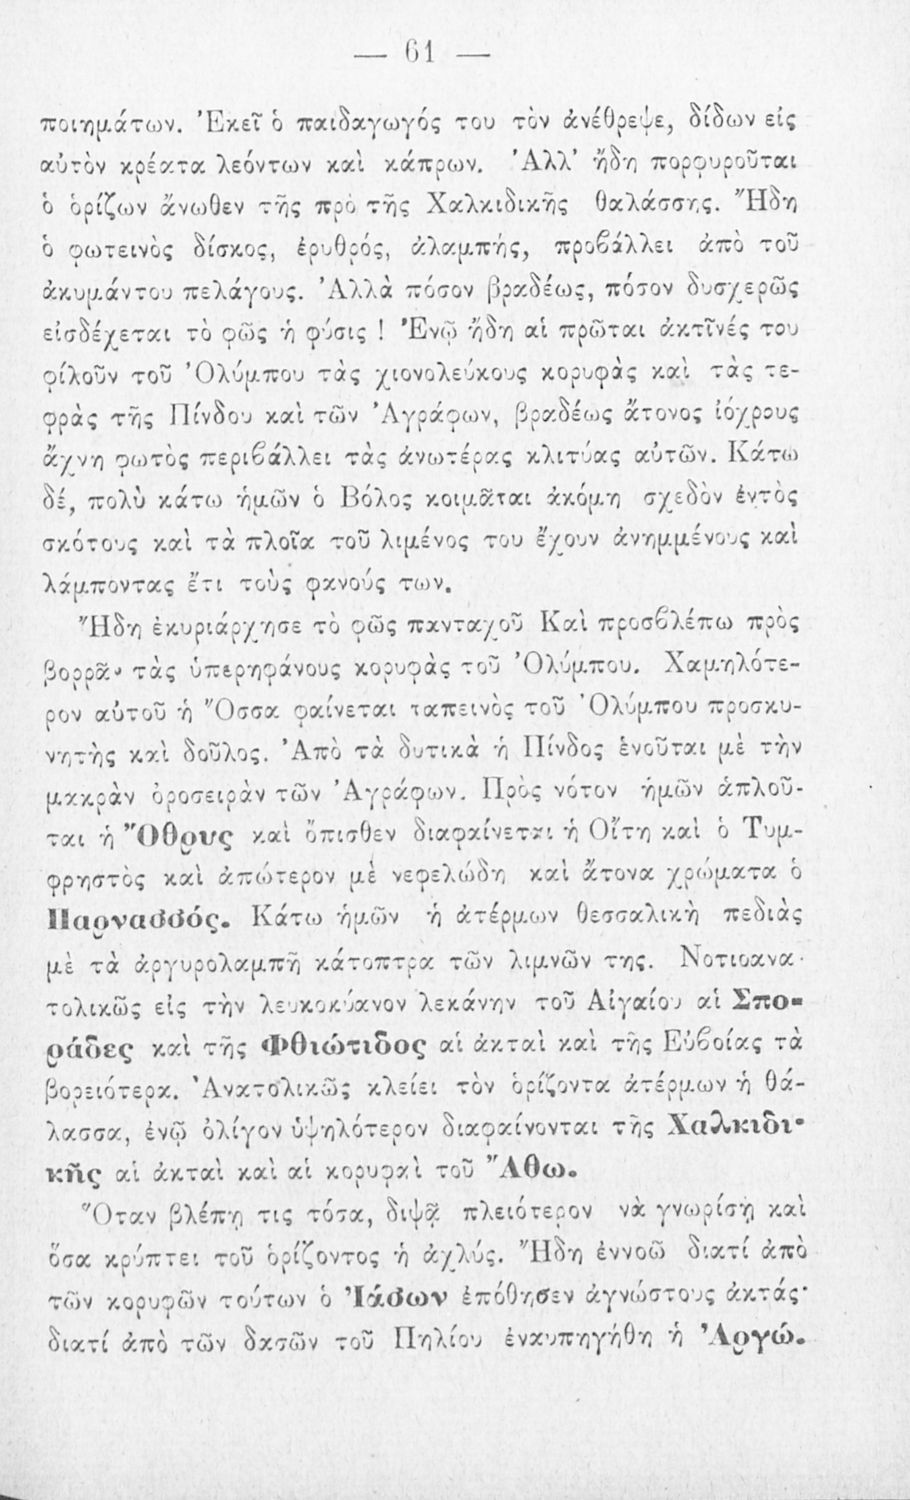 — 61 —
ποιημάτων. Ἐκεῖ ὁ παιδαγωγός του τὸν ἀνέθρεψε, δίδων εἰς
αὐτὸν κρέατα λεόντων καὶ κάπρων. Ἀλλ’ ἤδη πορφυροῦται
ὁ ὁρίζων ἄνωθεν τῆς πρὸ τῆς Χαλκιδικῆς θαλάσσης. Ἤδη
ὁ φωτεινὸς δίσκος, ἐρυθρός, ἀλαμπής, προβάλλει ἀπὸ τοῦ
ἀκυμάντου πελάγους. Ἀλλὰ πόσον βραδέως, πόσον δυσχερῶς
εἰσδέχεται τὸ φῶς ἡ φύσις ! Ἐνῷ ἤδη αἱ πρῶται ἀκτῖνές του
φίλοῦν τοῦ Ὀλύμπου τὰς χιονολεύκους κορυφὰς καὶ τὰς τε-
φρὰς τῆς Πίνδου καὶ τῶν Ἀγράφων, βραδέως ἄτονος ἰόχρους
ἄχνη φωτὸς περιβάλλει τὰς ἀνωτέρας κλιτύας αὐτῶν. Κάτω
δέ, πολὺ κάτω ἡμῶν ὁ Βόλος κοιμᾶται ἀκόμη σχεδὸν ἐντὸς
σκότους καὶ τὰ πλοῖα τοῦ λιμένος του ἔχουν ἀνημμένους καὶ
λάμποντας ἔτι τοὺς φανούς των.
Ἤδη ἐκυριάρχησε τὸ φῶς πανταχοῦ Καὶ προσβλέπω πρὸς
βορρᾶν τὰς ὑπερηφάνους κορυφὰς τοῦ Ὀλύμπου. Χαμηλότε-
ρον αὐτοῦ ἡ Ὄσσα φαίνεται ταπεινὸς τοῦ Ὀλύμπου προσκυ-
νητὴς καὶ δοῦλος. Ἀπὸ τὰ δυτικὰ ἡ Πίνδος ἑνοῦται μὲ τὴν
μακρὰν ὀροσειρὰν τῶν Ἀγράφων. Πρὸς νότον ἡμῶν ἁπλοῦ-
ται ἡ Ὄθρυς καὶ ὄπισθεν διαφαίνεται ἡ Οἴτη καὶ ὁ Τυμ-
φρηστὸς καὶ ἀπώτερον μὲ νεφελώδη καὶ ἄτονα χρώματα ὁ
Παρνασσός. Κάτω ἡμῶν ἡ ἀτέρμων θεσσαλικὴ πεδιὰς
μὲ τὰ ἀργυρολαμπῆ κάτοπτρα τῶν λιμνῶν της. Νοτιοανα-
τολικῶς εἰς τὴν λευκοκύανον λεκάνην τοῦ Αἰγαίου αἱ Σπο-
ράδες καὶ τῆς Φθιώτιδος αἱ ἀκταὶ καὶ τῆς Εὐβοίας τὰ
βορειότερα. Ἀνατολικῶς κλείει τὸν ὁρίζοντα ἀτέρμων ἡ θά-
λασσα, ἐνῷ ὀλίγον ὑψηλότερον διαφαίνονται τῆς Χαλκιδι-
κῆς αἱ ἀκταὶ καὶ αἱ κορυφαὶ τοῦ Ἄθω.
Ὅταν βλέπῃ τις τόσα, διψᾷ πλειότερον νὰ γνωρίσῃ καὶ
ὅσα κρύπτει τοῦ ὁρίζοντος ἡ ἀχλύς. Ἤδη ἐννοῶ διατί ἀπὸ
τῶν κορυφῶν τούτων ὁ Ἰάσων ἐπόθησεν ἀγνώστους ἀκτάς·
διατί ἀπὸ τῶν δασῶν τοῦ Πηλίου ἐναυπηγήθη ἡ Ἀργώ.